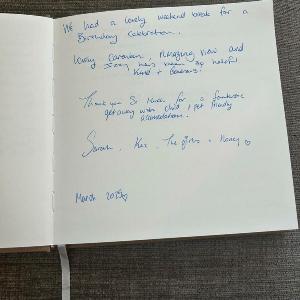 We had a lovely weekend break for a
Birthday Celebration.
Lovely Caravan, Amazing view and
has been so helpful
Kind + Generous.
Thank you So much for a fantastic
getaway with child + pet friendly
accomodation.
Sarah, The girls + Honey
March